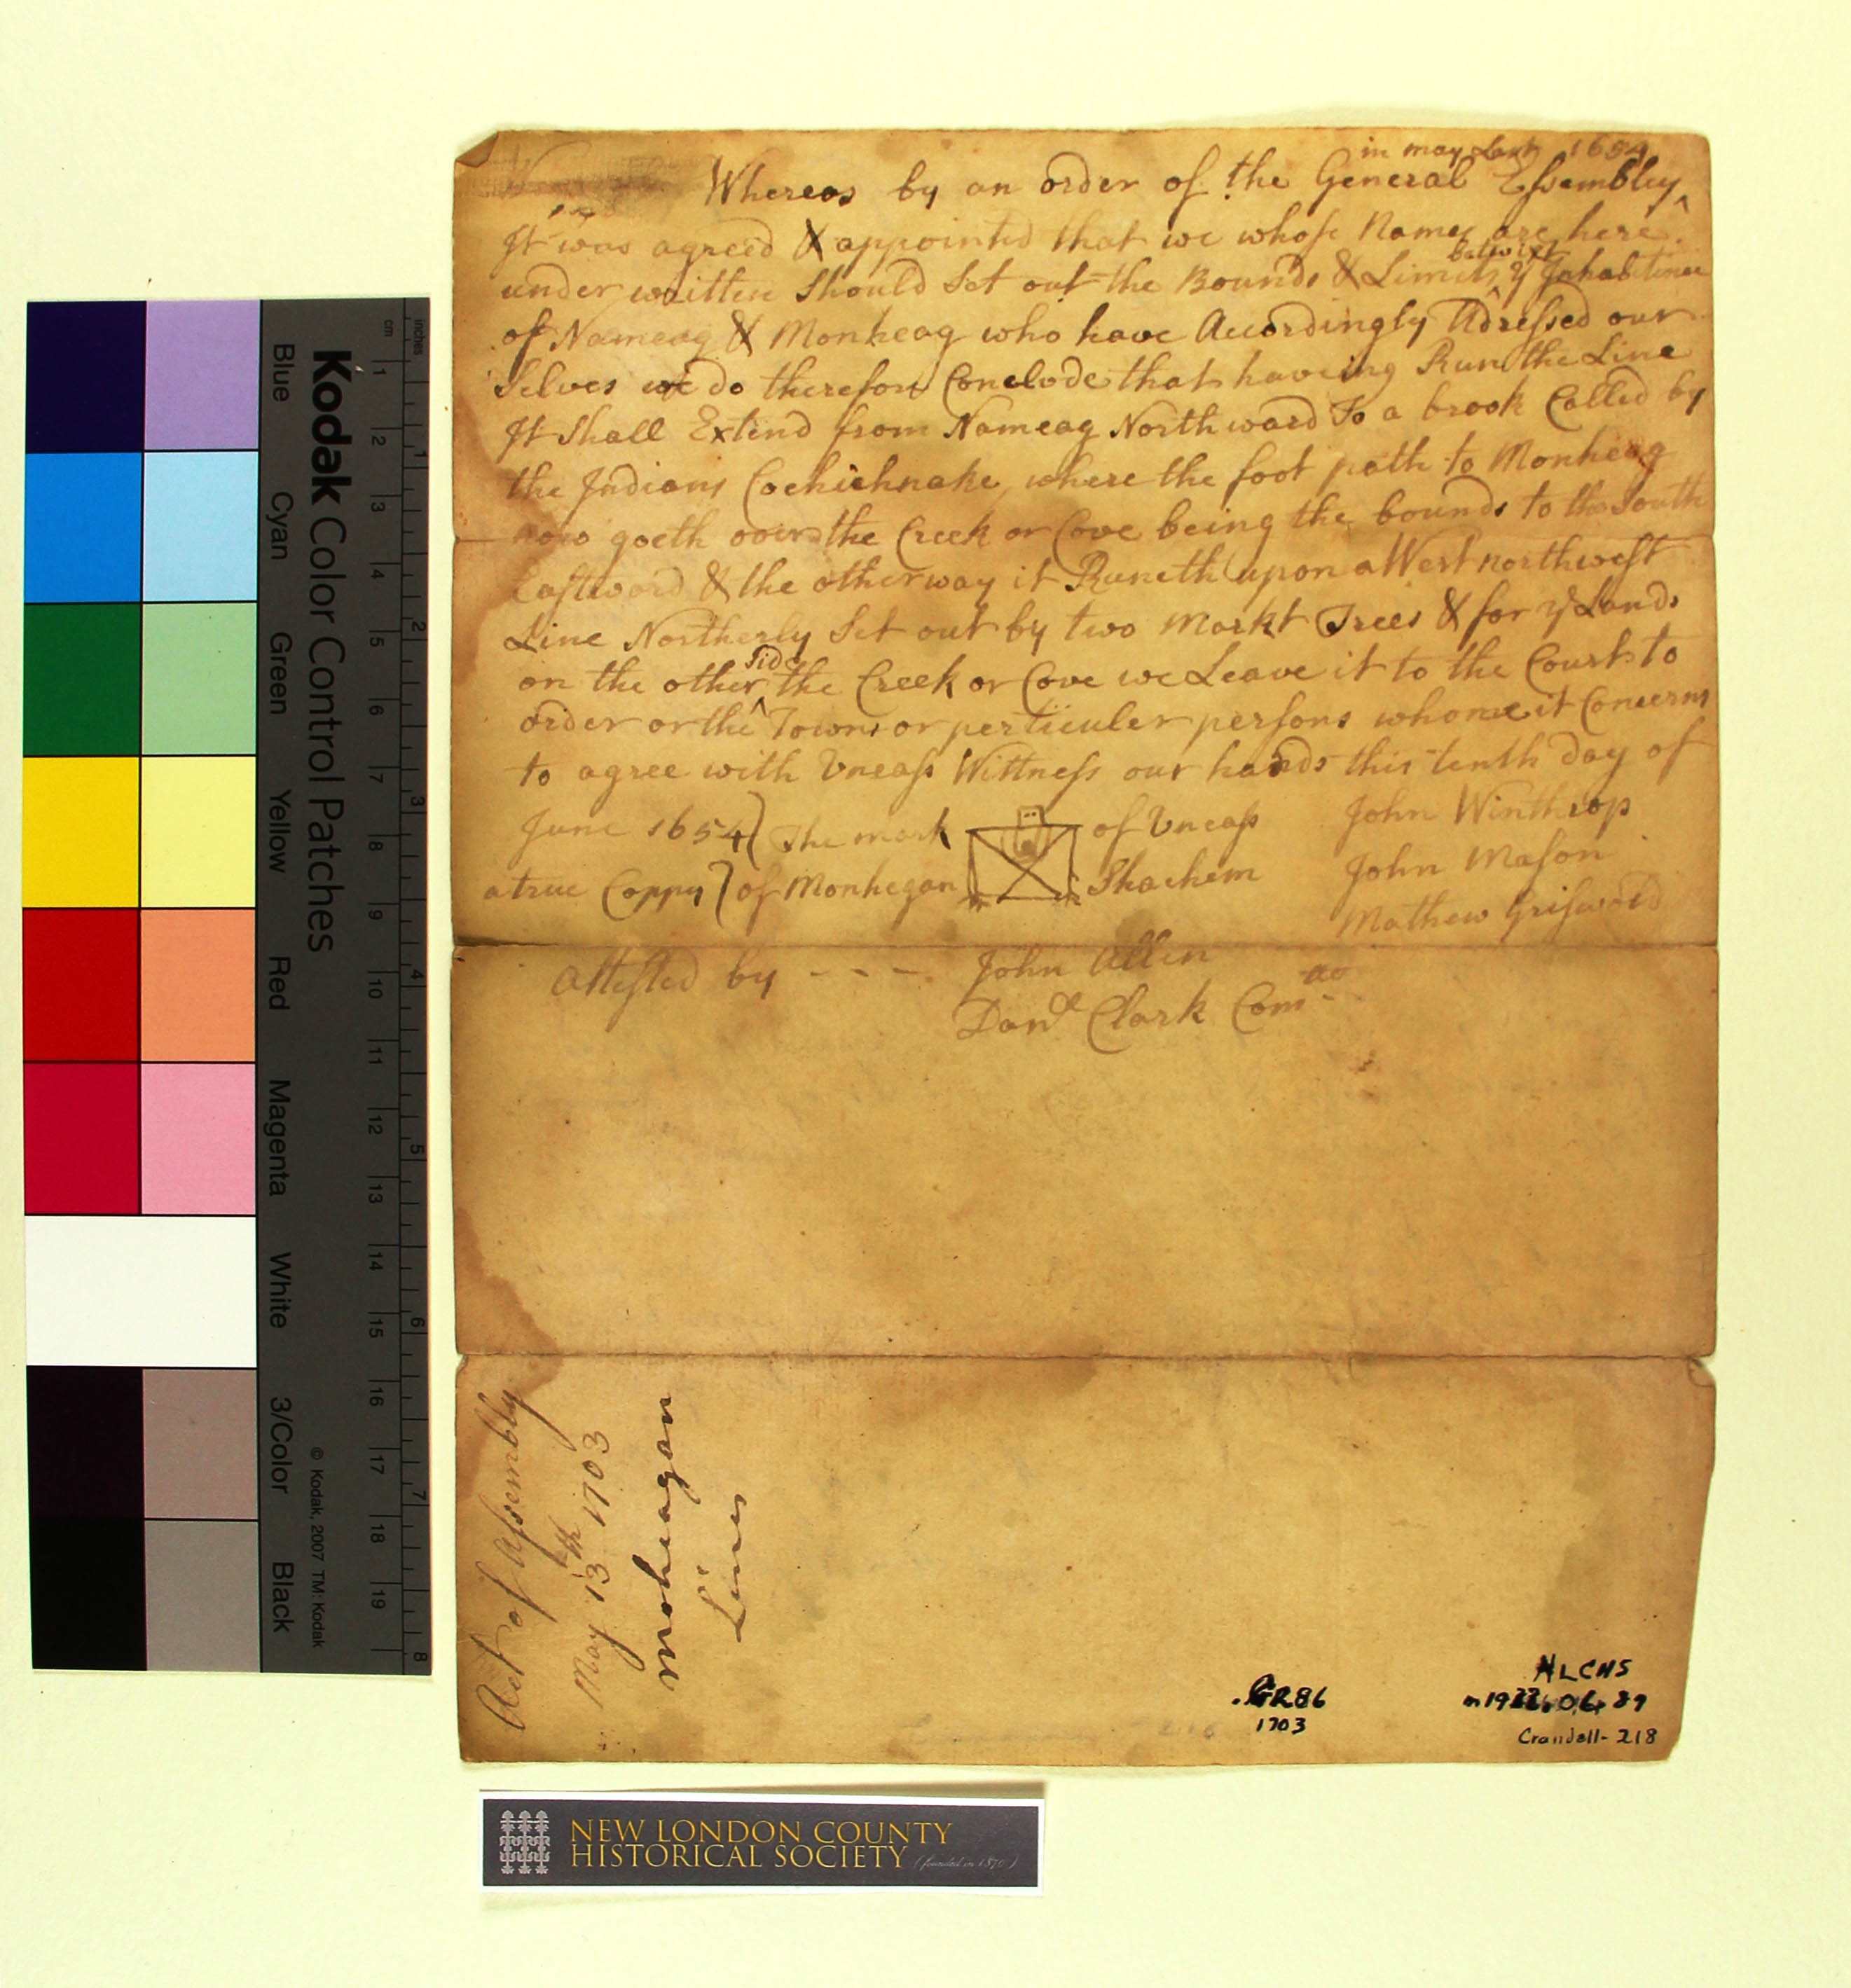 in may Last 1654
Whereas by an order of the General Essembley
It was agreed & appointed that we whose Names are here
betwixt
under written Should Set out the Bounds & Limits ye Inhabitance
of Nameag & Monheag who have Accordingly Adressed our
Selves we do therefore Conclude that having Run the Line
It Shall Extend from Nameag Northward To a brook Called by
the Indians Cochichnake, where the foot path to Monheag
now goeth over the Creek or Cove being the bounds to the South
Eastward & the other way it Runeth upon a West northwest
Line Northerly Set out by two Markt Trees & for ye Lands
side
on the other the Creek or Cove we Leave it to the Court to
order or the Towns or perticuler persons whome it Concerns
to agree with Vncass Wittness our hands this tenth day of
June 1654 } The mark of Vncass John Winthrop
a true Coppy } of Monhegan Shachem John Mason
Mathew Griswold
Attested by - - - John Allin
Danll Clark
Act of Assembly
May 13th 1703
moheagan
Lines
GR86
1703
NLCHS
Crandell-218
NEW LONDON COUNTY
HISTORICAL SOCIETY (founded in 1870)
Kodak Color Control Patches
Blue Cyan Green Yellow Red Magenta White 3/Color Black
© Kodak, 2007 TM: Kodak
inches 1 2 3 4 5 6 7 8
cm 1 2 3 4 5 6 7 8 9 10 11 12 13 14 15 16 17 18 19